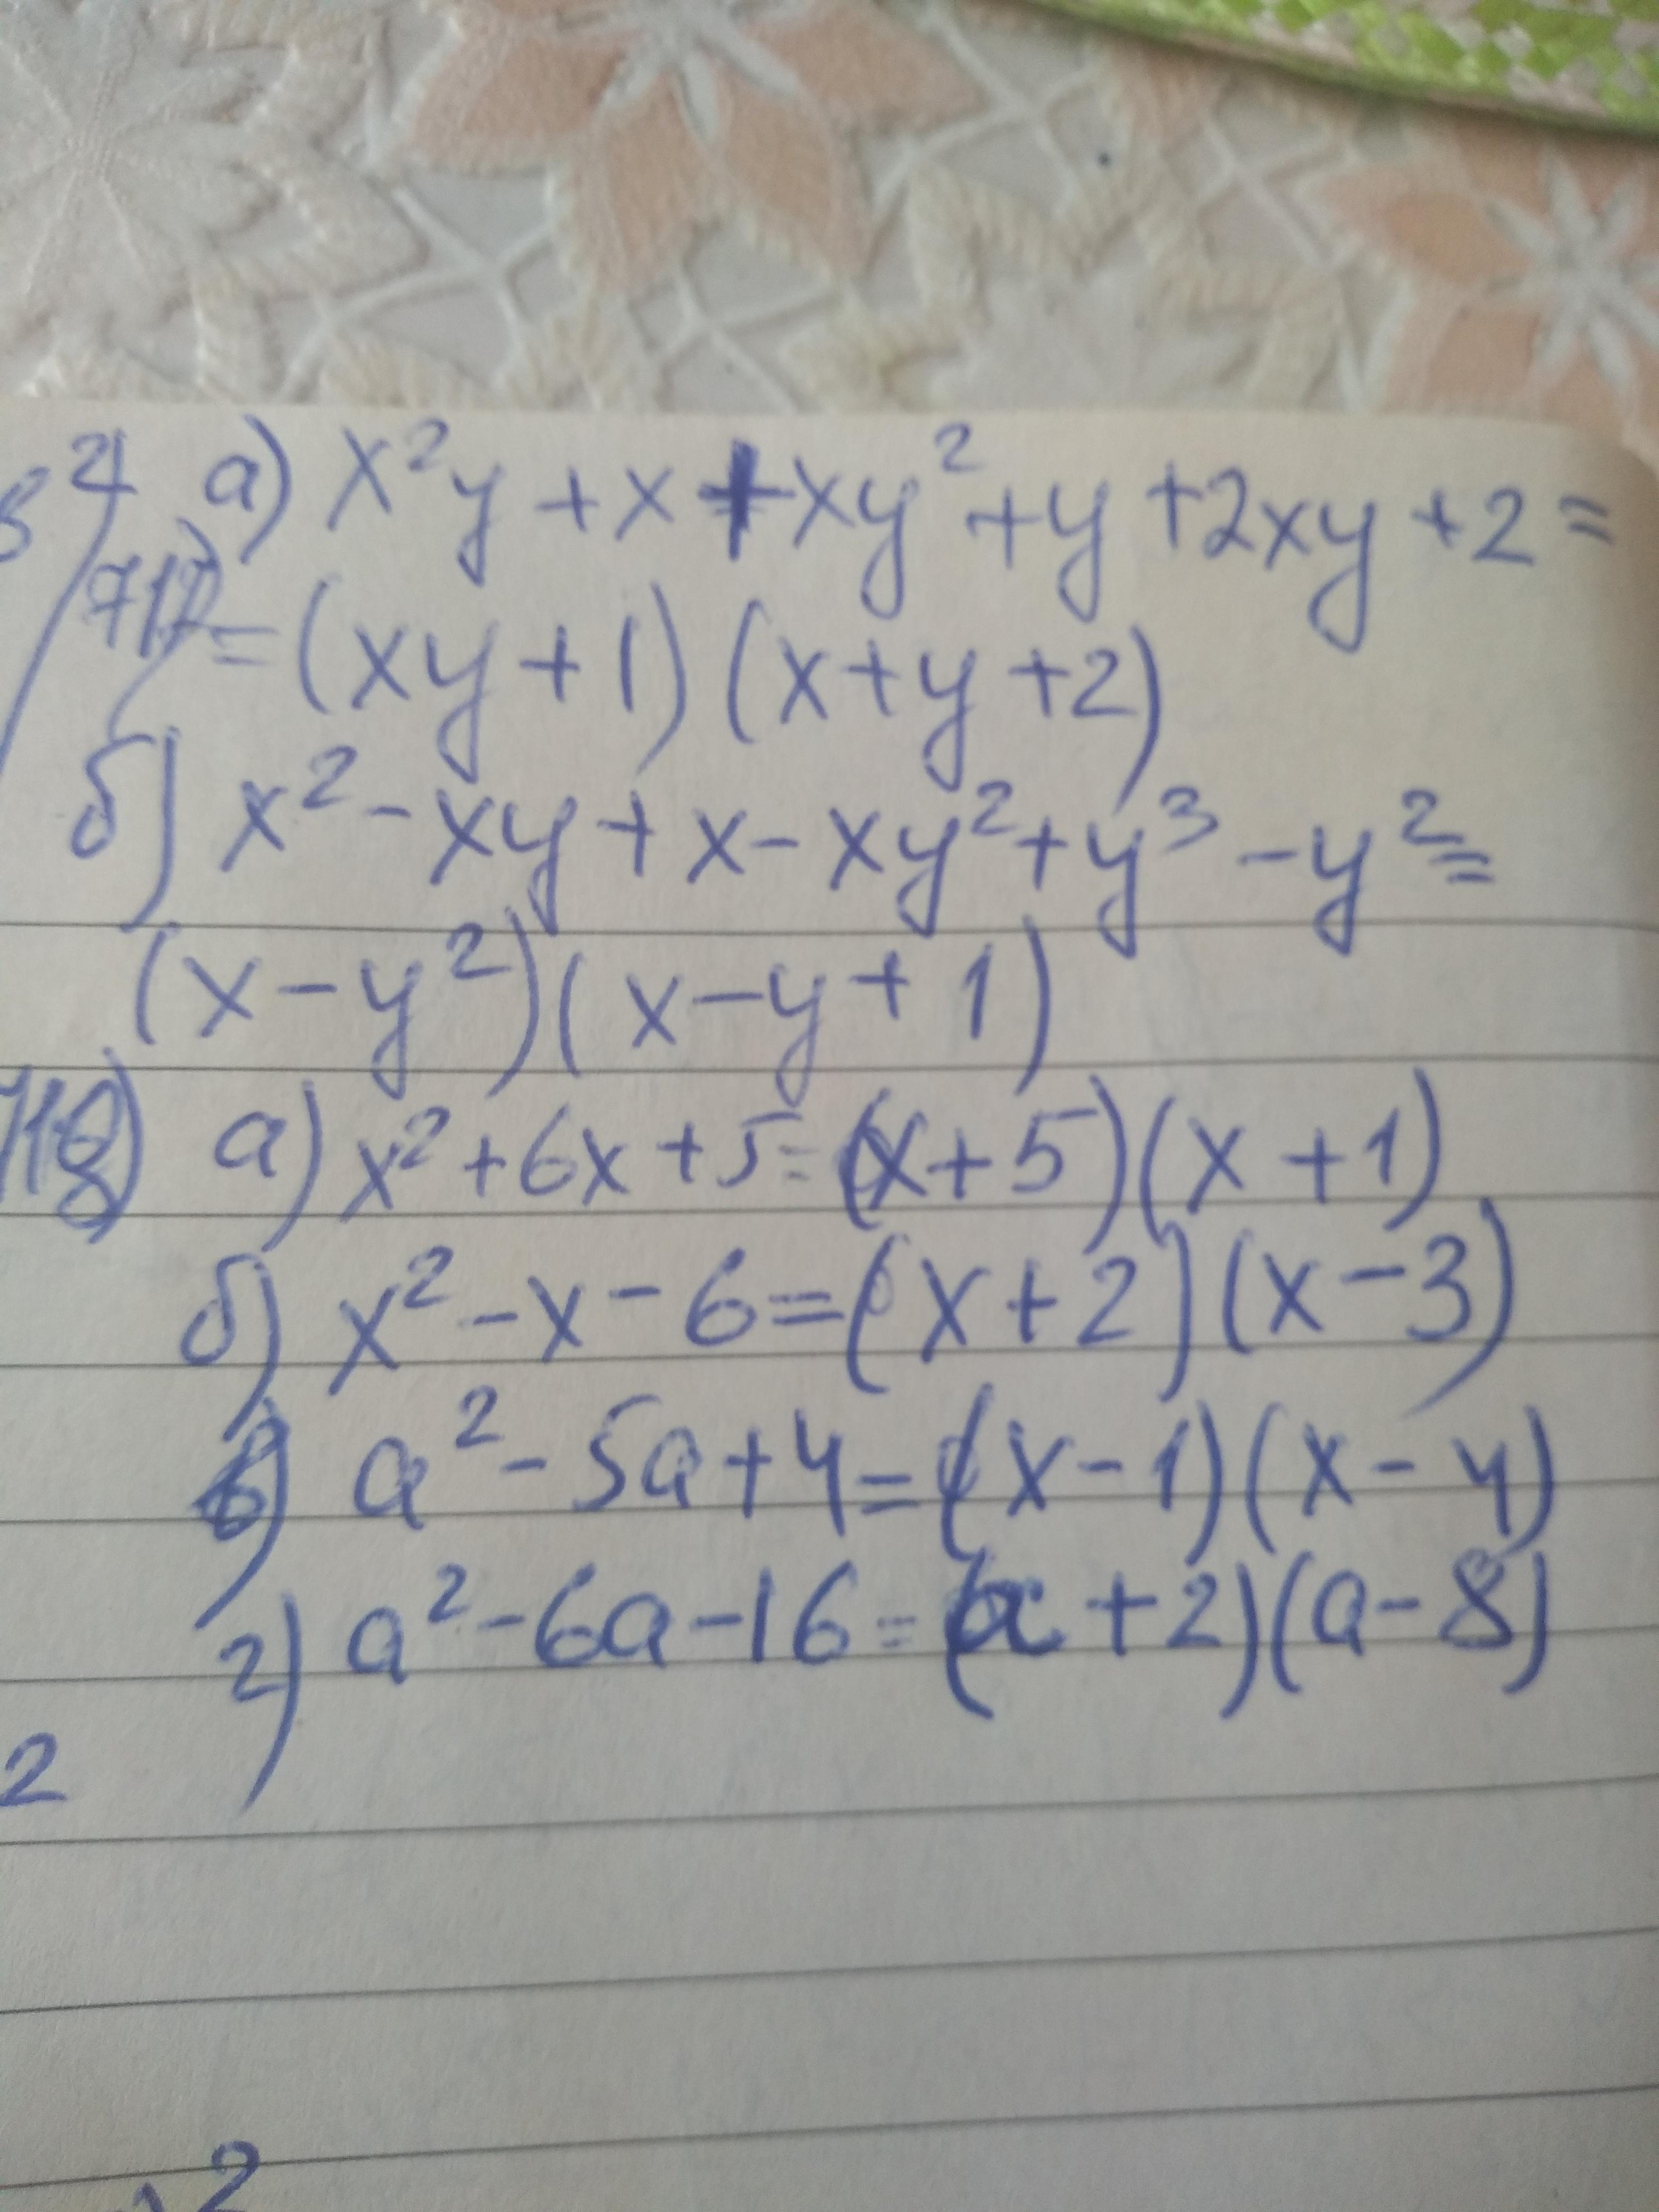 а) x²y + x + xy² + y + 2xy + 2 =
717) = (xy + 1) (x + y + 2)
б) x² - xy + x - xy² + y³ - y² =
(x - y²)(x - y + 1)
718) а) x² + 6x + 5 = (x + 5)(x + 1)
б) x² - x - 6 = (x + 2)(x - 3)
в) a² - 5a + 4 = (x - 1)(x - 4)
г) a² - 6a - 16 = (a + 2)(a - 8)
2
2